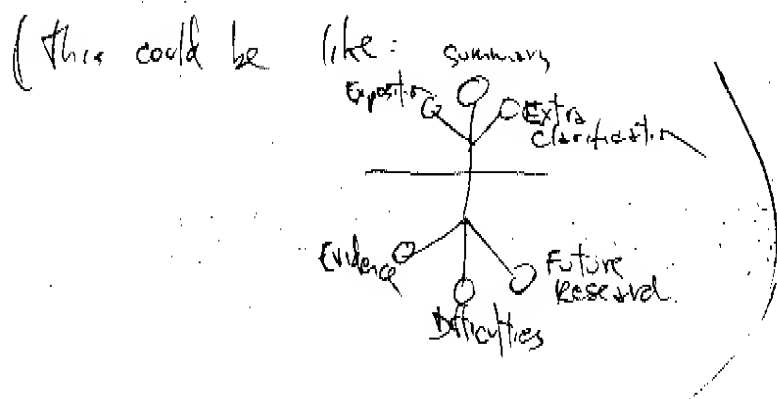 (this could be like:
Summary
Exposition
Extra
Clarification
Evidence
Future
Research
Difficulties
)